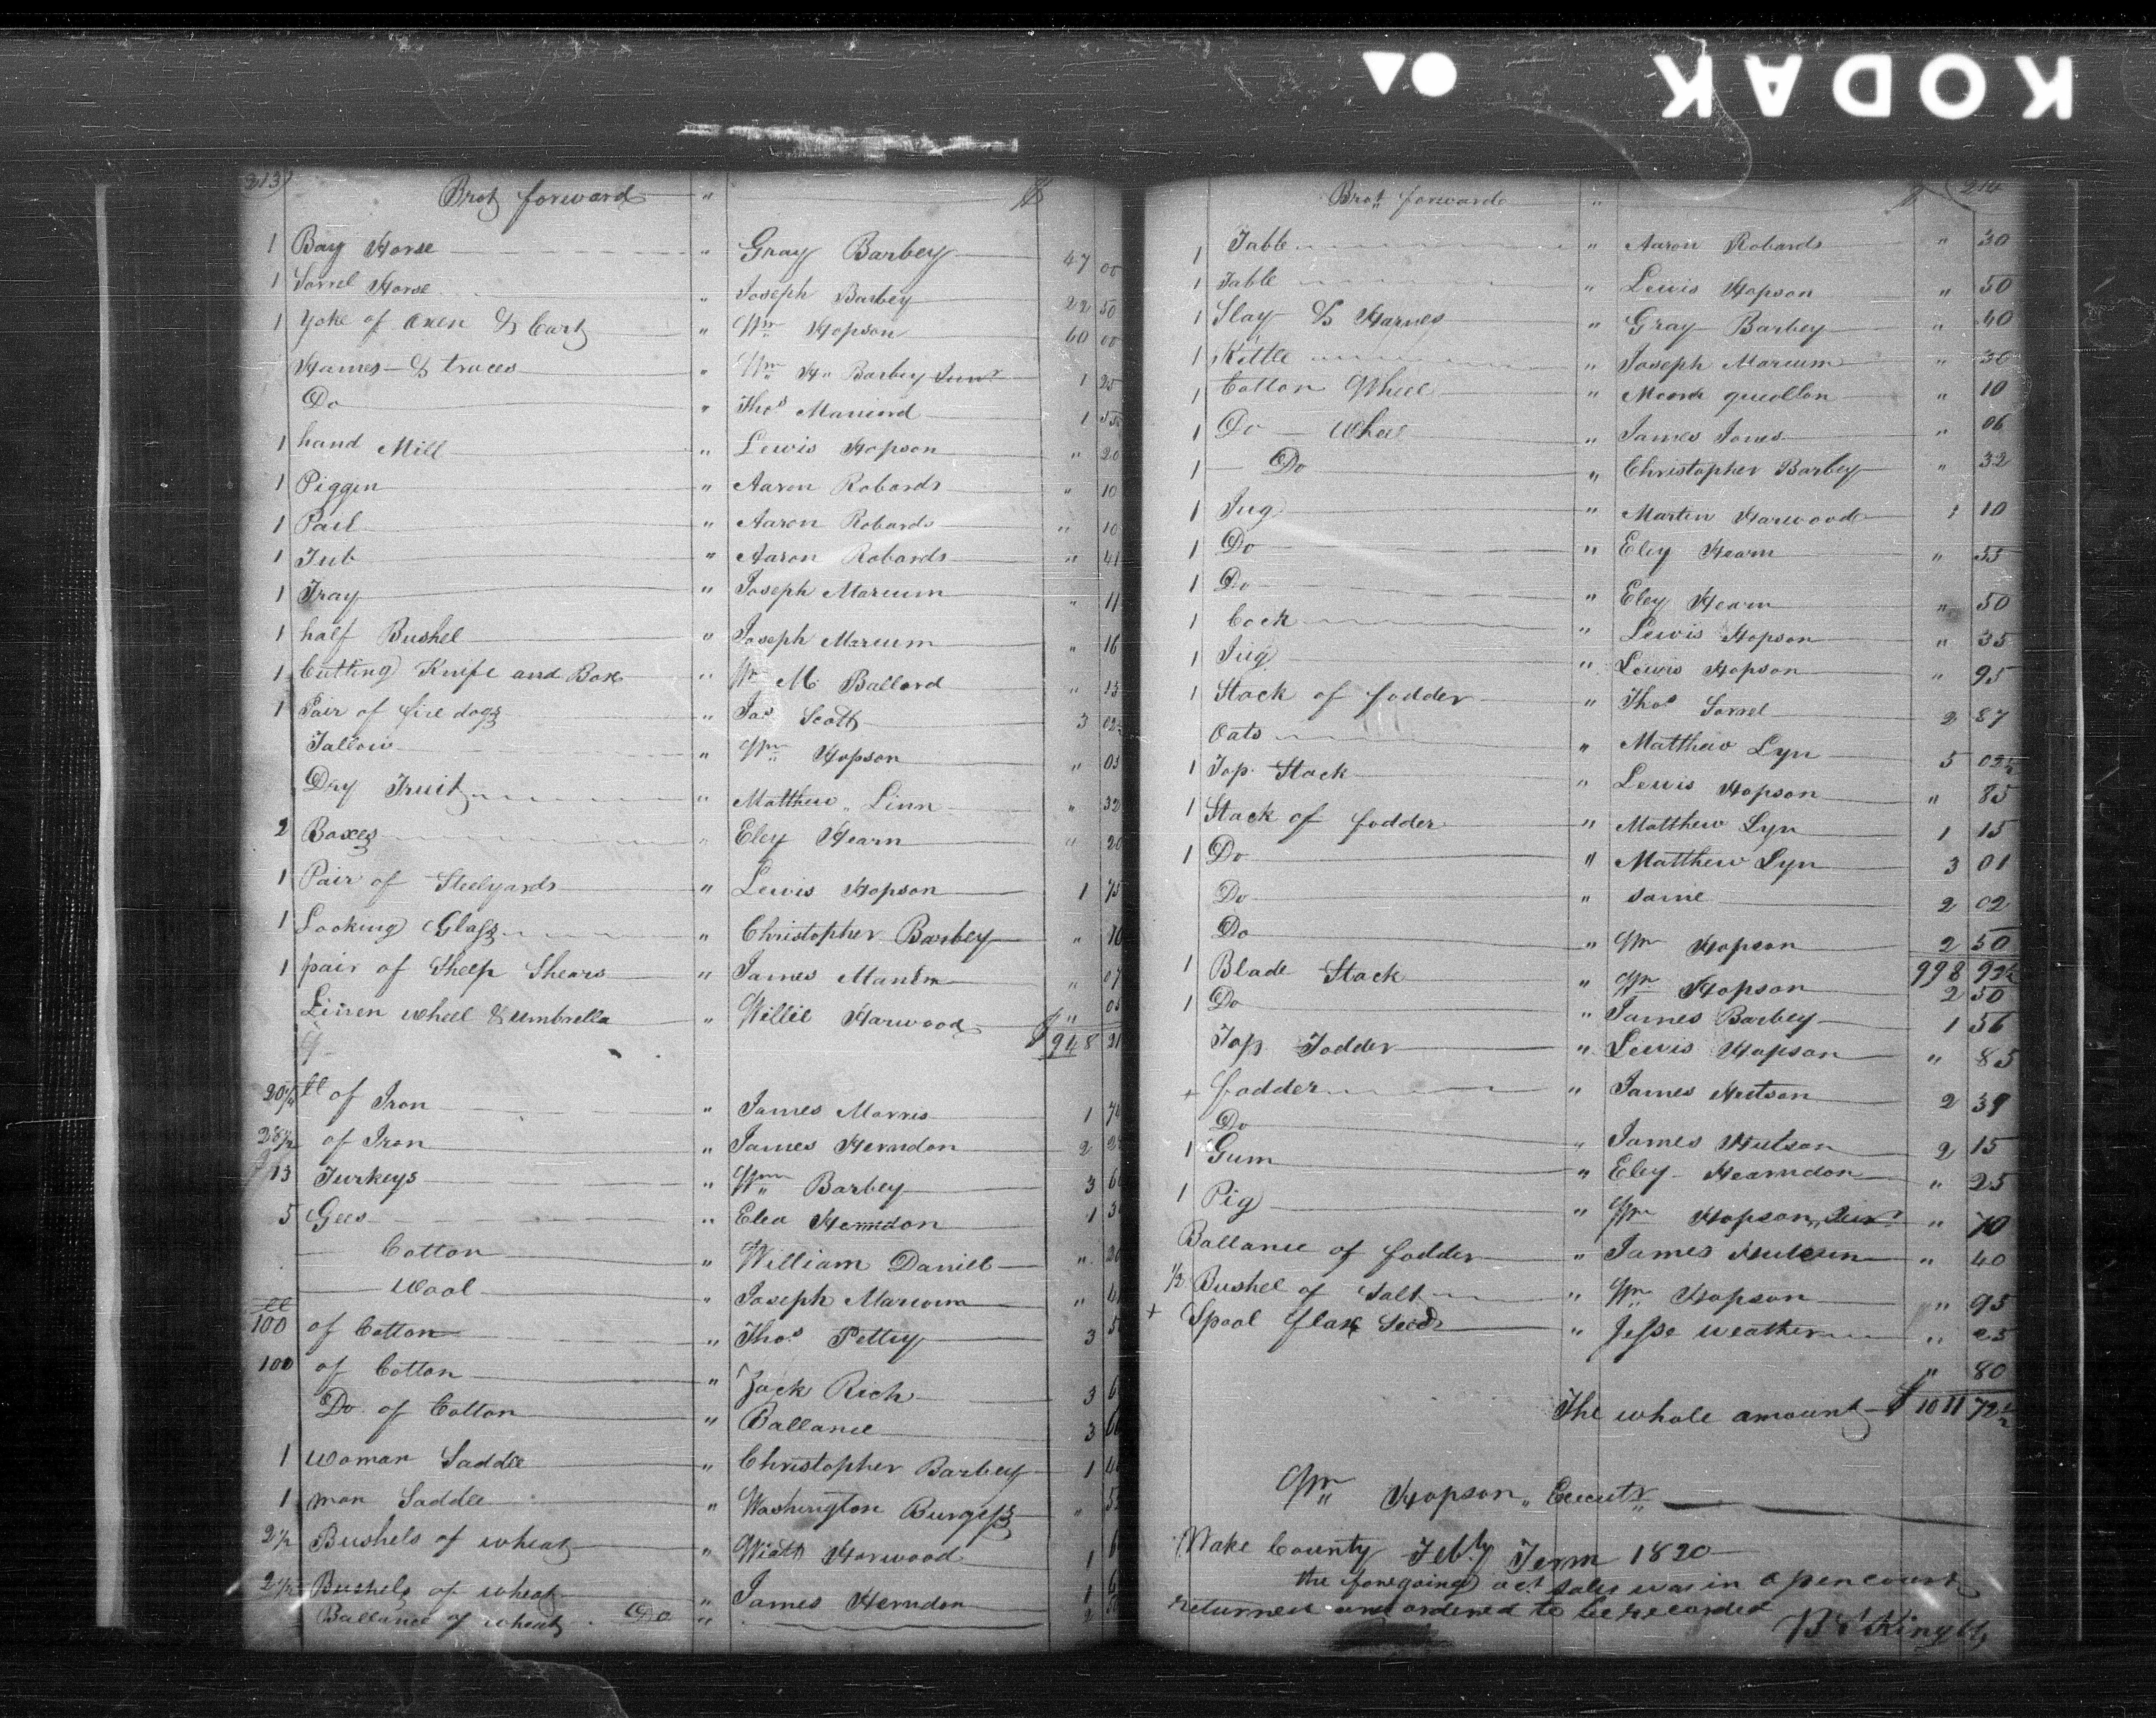 KODAK
213
Brot forward " $
1 Bay Horse " Gray Barbey 47 00
1 Sorrel Horse " Joseph Barbey 22 50
1 Yoke of Oxen & Cart " Wm Hopson 60 00
Hames & traces " Wm H. Barbey Junr 1 25
Do " Thos 1
1 hand Mill " Lewis Hopson " 20
1 Piggin " Aaron Robards " 10
1 Pail " Aaron Robards " 10
1 Tub " Aaron Robards " 41
1 Tray " Joseph Marcum " 11
1 half Bushel " Joseph Marcum " 16
1 Cutting Knife and Box " M. Ballard "
1 Pair of fire dogs " Jas Scott 3
Tallow " Wm Hopson "
Dry Fruit " Matthew Linn " 32
2 Boxes " Eley Hearn " 20
1 Pair of Steelyards " Lewis Hopson 1 75
1 Looking Glass " Christopher Barbey "
1 pair of Sheep Shears " James " 07
Linen wheel & umbrella " Willie Harwood "
$ 948 21
ll of Iron " James Morris 1
28 1/2 of Iron " James Herndon 2
13 Turkeys " Wm Barbey 3
5 Gees " Elea Herndon 1
Cotton " William Daniel "
Wool " Joseph Marcom "
ll
100 of Cotton " Thos Pettey 3
100 of Cotton " Zack Rich 3
Do of Cotton " Ballance 3
1 Woman Saddle " Christopher Barbey 1
1 man Saddle " Washington Burgess "
2 1/2 Bushels of wheat " Wiatt Horwood 1
2 1/2 Bushels of wheat " James Herndon 1
Ballance of wheat Do " 2
214
Brot forward "
1 Table " Aaron Robards " 30
1 Table " Lewis Hopson " 50
1 Slay & Harnes " Gray Barbey " 40
1 Kittle " Joseph Marcum "
1 Cotton Wheel " " 10
1 Do Wheel " James Jones " 06
1 Do " Christopher Barbey " 32
1 Jug " Martin Harwood 10
1 Do " Eley Hearn " 55
1 Do " Eley Hearn " 50
1 Cock " Lewis Hopson " 35
1 Jug " Lewis Hopson " 95
1 Stack of fodder " Thos Sorrel 2 87
Oats " Matthew Lyn 5 02 1/2
1 Top Stack " Lewis Hopson " 85
1 Stack of fodder " Matthew Lyn 1 15
1 Do " Matthew Lyn 3 01
Do " same 2 02
Do " Wm Hopson 2 50
998 92 1/2
1 Blade Stack " Wm Hopson 2 50
1 Do " James Barbey 1 56
Top Fodder " Lewis Hopson " 85
+ fodder " James Hutson 2 39
Do " James Hutson 2 15
1 Gum " Eley Hearndon " 25
1 Pig " Wm Hopson, Junr " 70
Ballance of fodder " James " 40
1/2 Bushel of Salt " Wm Hopson " 95
+ Spool flax Seed " Jesse Weathers "
" 80
The whole amount $ 1011 72 1/2
Wm Hopson, Executr
Wake County Feby Term 1820
the foregoing act sales was in open court
returned and ordered to be recorded
B S King Ck